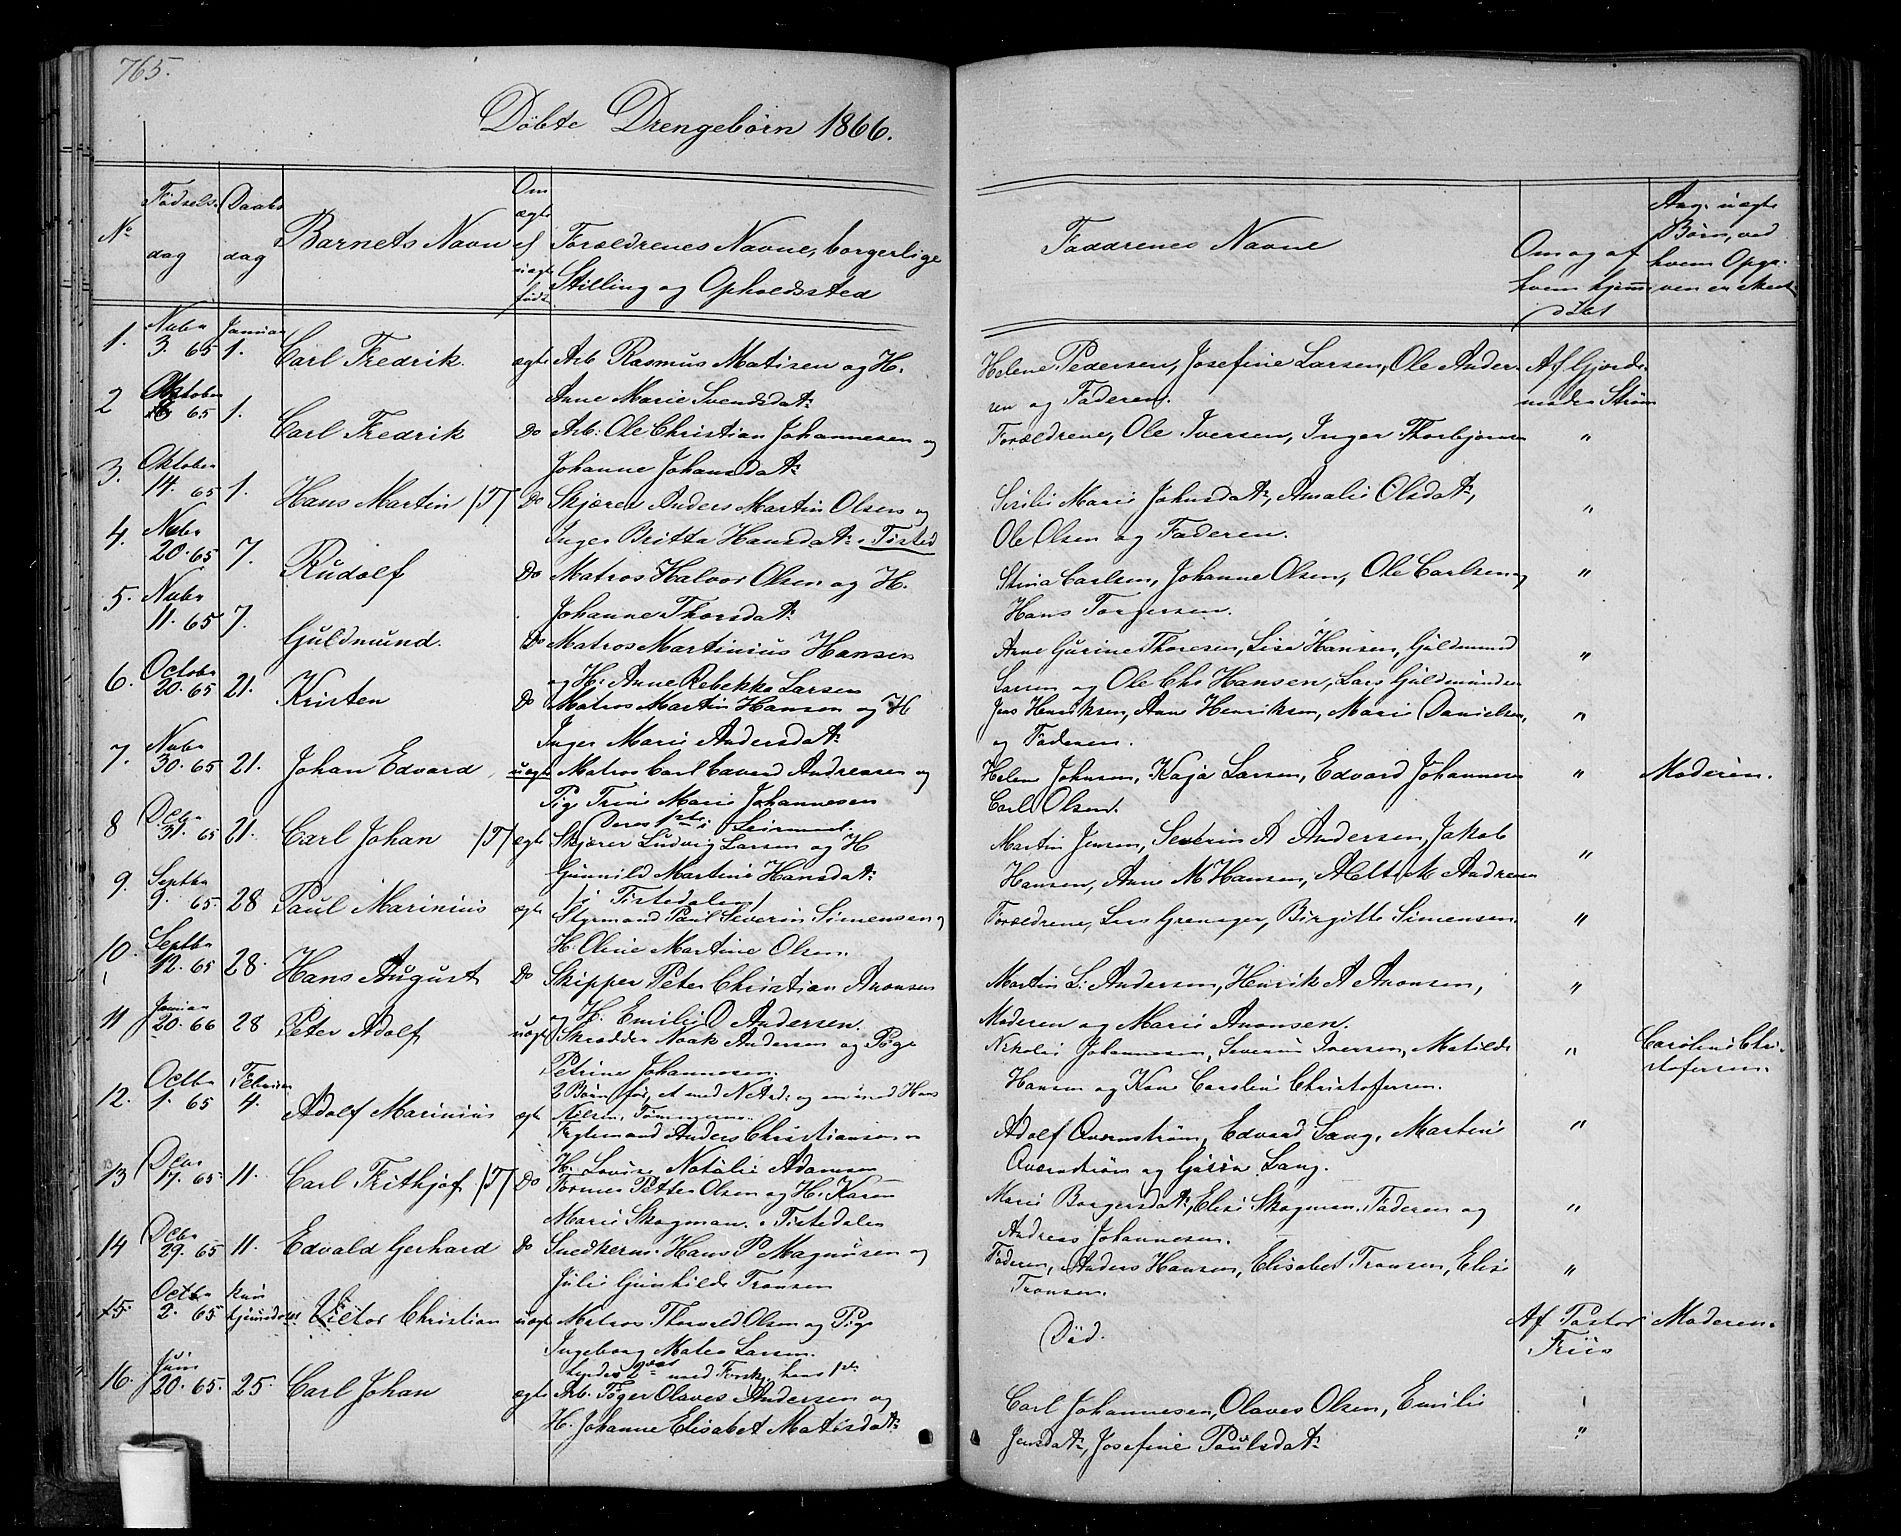 765.
Döbte Drengebörn 1866.
No
Födsels-
dag
Daabs
dag
Barnets Navn
Om
ægte
el
uægte
födt
Forældrenes Navne, borgerlige
Stilling og Opholdssted
Faddrenes Navne
Om og af
hvem hjem-
döbt
Ang. uægte
Börn, ved
hvem Opga-
ven er skeet
1. Nvbr 3. 65 Januar 1. Carl Fredrik. ægte Arb. Rasmus Matisen og H.
Anne Marie Svendsdatr
Helene Pedersen, Josefine Larsen, Ole Ander-
sen og Faderen.
Af Gjorde-
moder Ström
2 Oktober 65 1. Carl Fredrik Do Arb. Ole Christian Johannesen og
Johanne Johansdatr
Forældrene, Ole Iversen, Inger Thorbjörnsen "
3. Oktober 14. 65 1. Hans Martin /T/ Do Skjærer Anders Martin Olsen og
Inger Britta Hansdatr. Tisted
Marie Johnsdatr, Amalie Olsdatr,
Ole Olsen og Faderen. "
4. Nvbr 20. 65 7. Rudolf Do Matros Halvor Olsen og H.
Johanne Thorsdatr
Stina Carlsen, Johanne Olsen, Ole Carlsen og
Hans Torgersen. "
5. Nvbr 11. 65 7. Guldmund. Do Matros Martinius Hansen
og H. Anne Rebekka Larsen
Anne Gurine Thoresen, Lisa Hansen, Guldmund
Larsen og Ole Chr Hansen, Lars Guldmundsen "
6. October 20. 65 21. Kristen Do Matros Martin Hansen og H
Inger Marie Andersdatr
Jens Henriksen, Ane Henriksen, Marie Danielsen,
og Faderen. "
7. Nvbr 30. 65 21. Johan Edvard, uægte Matros Carl Edvard Andreasen og
Pig Trine Marie Johannesen
Deres 1ste
Helene Johnsen, Kaja Larsen, Edvard Johannesen
Carl Olsen. " Moderen.
8 Dcbr 31. 65 21. Carl Johan /T/ ægte Skjærer Ludvig Larsen og H
Gunnild Martine Hansdatr
/i Tistedalen/
Martin Jensen, Severin A Andersen, Jakob
Hansen, Anne M Hansen, M Andresen "
9. Septbr 9. 65. 28 Paul Marinius ægte Styrmand Paul Severin Simensen og
H. Oline Martine Olsen.
Forældrene, Birgitte Simensen. "
10. Septbr 12. 65 28. Hans August Do Skipper Peter Christian Aronsen
og H. Emilie O Andersen.
Martin L. Andersen, Henrik A Aronsen,
Moderen og Marie Aronsen. "
11 Januar 20. 66 28 Peter Adolf uægte Skrædder Noak Andersen og Pige
Petrine Johannesen.
2 Börn för, et med N And. og en med Hans
Nilsen,
Nikolai Johannesen, Severin Iversen, Matilde
Hansen og Kone Caroline Christofersen. " Caroline Chri-
stofersen.
12. Octbr 1. 65 Februar 4. Adolf Marinius ægte Anders Christiansen og
H. Lovise Natalie Adamsen
Adolf Edvard Lang, Martine
og Lang. "
13 Dcbr 17. 65 11. Carl Frithjof /T/ Do Former Petter Olsen og H. Karen
Marie Skogman. i Tistedalen
Marie Borgersdatr, Elise Skogman, Faderen og
Andreas Johannesen. "
14 Dcbr 29. 65 11. Edvald Gerhard Do Snedkersv. Hans P Magnusen og
Julie Gunhilde Fransen
Faderen, Anders Hansen, Elisabet Fransen, Elise
Fransen. "
15. Octbr 2. 65 kun hjemmedöbt Victor Christian uægte Matros Thorvald Olsen og Pige
Ingeborg Matea Larsen.
hendes 2det med Forskj, hans 1ste
Död. Af Pastor
Friis Moderen.
16. Juni 20. 65. 25. Carl Johan ægte Arb. Olaves Andersen og
H. Johanne Elisabet Matisdatr
Carl Johannesen, Olaves Olsen, Emilie
Jensdatr, Josefine Paulsdatr "